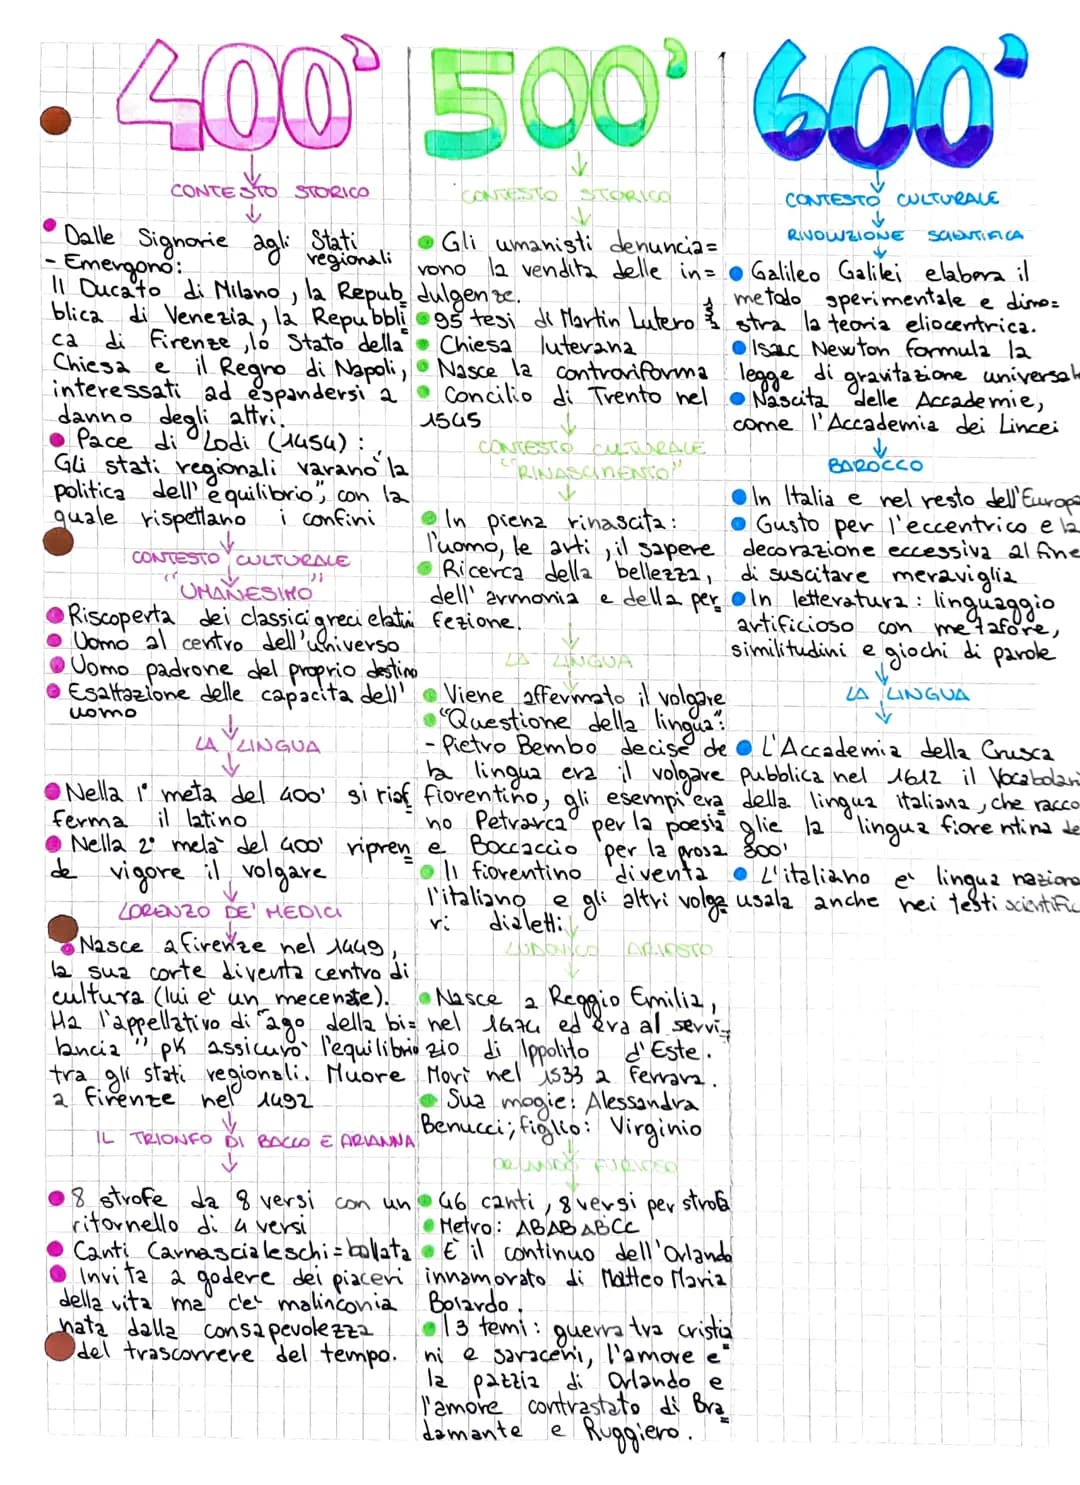 400'
CONTESTO STORICO
Dalle Signorie agli Stati
regionali
- Emergono:
Il Ducato di Milano, la Repub
blica di Venezia, la Repubbli
ca di Firenze, lo Stato della
Chiesa e il Regno di Napoli,
interessati ad espandersi a
danno degli altri.
Pace di Lodi (1454):
Gli stati regionali varano la
politica dell'equilibrio", con la
quale rispettano i confini
CONTESTO CULTURALE
"UMANESIMO"
Riscoperta dei classici greci e latini
Uomo al centro dell'universo
Uomo padrone del proprio destino
Esaltazione delle capacita dell'
uomo
LA LINGUA
Nella 1° metà del 400' si riaf
ferma il latino
Nella 2° metà del 400' ripren
de vigore il volgare
LORENZO DE' MEDICI
Nasce a firenze nel 1449,
la sua corte diventa centro di
cultura (lui e' un mecenate).
Ha l'appellativo di "ago della bi=
lancia" pk assicurò l'equilibrio
tra gli stati regionali. Muore
a Firenze nel 1492
IL TRIONFO DI BACCO E ARIANNA
8 strofe da 8 versi con un
ritornello di 4 versi
Canti Carnascialeschi = ballata
Invita a godere dei piaceri
della vita ma c'e' malinconia
nata dalla consapevolezza
del trascorrere del tempo.
500'
CONTESTO STORICO
Gli umanisti denuncia=
vono la vendita delle in=
dulgenze.
95 tesi di Martin Lutero
Chiesa luterana
Nasce la controriforma
Concilio di Trento nel
1545
CONTESTO CULTURALE
"RINASCIMENTO"
In piena rinascita:
l'uomo, le arti, il sapere
Ricerca della bellezza,
dell'armonia e della per
fezione.
LA LINGUA
Viene affermato il volgare
"Questione della lingua":
- Pietro Bembo decise de
la lingua era il volgare
fiorentino, gli esempi era
no Petrarca per la poesia
e Boccaccio per la prosa
Il fiorentino diventa
l'italiano e gli altri volga
ri dialetti.
LUDOVICO ARIOSTO
Nasce a Reggio Emilia,
nel 1474 ed era al servi
zio di Ippolito d'Este.
Morì nel 1533 a Ferrara.
Sua mogie: Alessandra
Benucci; figlio: Virginio
ORLANDO FURIOSO
46 canti, 8 versi per strofa
Metro: ABABABCC
È il continuo dell'Orlando
innamorato di Matteo Maria
Boiardo.
I 3 temi: guerra tra cristia
ni e saraceni, l'amore e
la pazzia di Orlando e
l'amore contrastato di Bra
damante e Ruggiero.
600'
CONTESTO CULTURALE
RIVOLUZIONE SCIENTIFICA
Galileo Galilei elabora il
metodo sperimentale e dimo=
stra la teoria eliocentrica.
Isac Newton formula la
legge di gravitazione universale
Nascita delle Accademie,
come l'Accademia dei Lincei
BAROCCO
In Italia e nel resto dell'Europa
Gusto per l'eccentrico e la
decorazione eccessiva al fine
di suscitare meraviglia
In letteratura: linguaggio
artificioso con metafore,
similitudini e giochi di parole
LA LINGUA
L'Accademia della Crusca
pubblica nel 1612 il Vocabolari
della lingua italiana, che racco
glie la lingua fiorentina de
300'
L'italiano e' lingua naziona
usala anche nei testi scientific